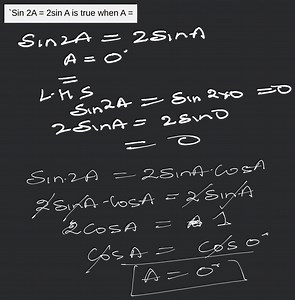 `Sin 2A = 2sin A is true when A =
Sin2A = 2sinA
A = 0°
=
L.H.S
Sin2A = Sin 2x0 = 0
2SinA = 2Sin0
= 0
Sin.2A = 2SinA.CosA
2SinA.CosA = 2SinA
2CosA = 1
CosA = Cos 0°
A = 0°